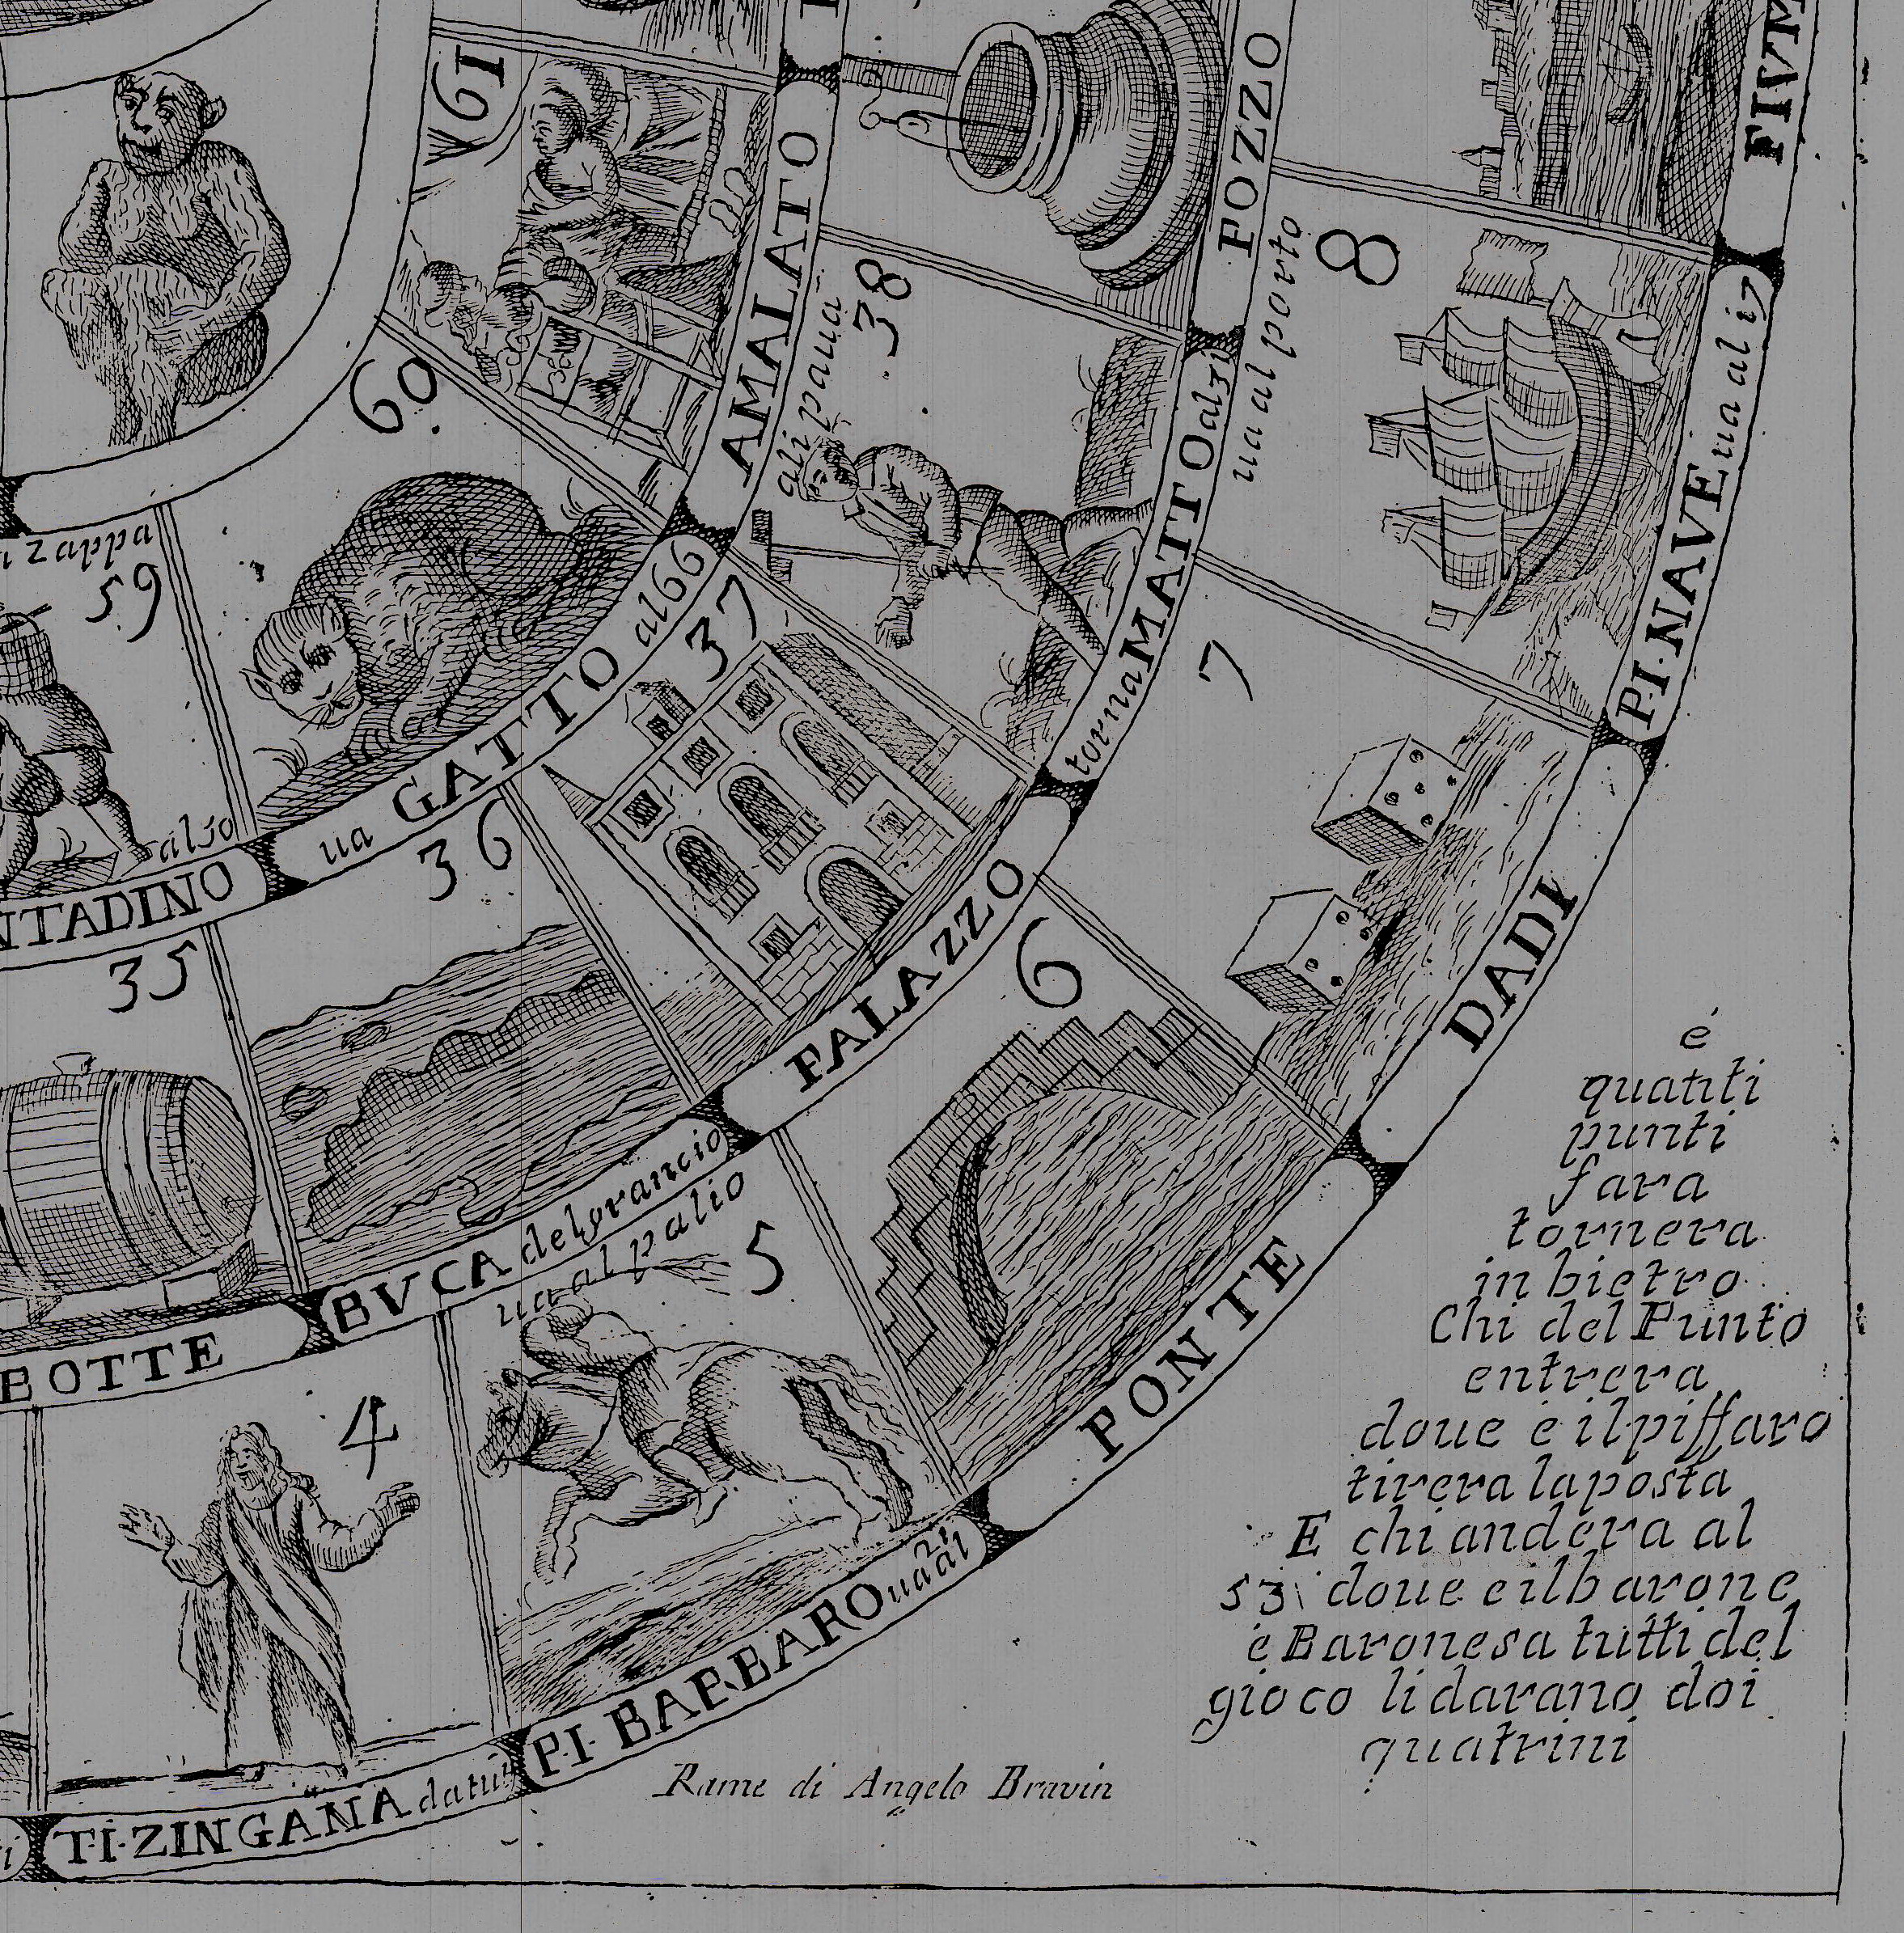 61
AMALATO
POZZO
FIVM
60
ali paua
38
ua al porto
8
59
ua GATTO al 66
37
torna MATTO al 31
7
P.I. NAVE ua al i7
al 50
NTADINO
36
PALAZZO
6
DADI
35
BVCA del grancio
ua al palio
5
PONTE
BOTTE
4
T.I. ZINGANA
P.I. BARBARO ua al 21
é
quanti
punti
fara
tornera
in bietro
Chi del Punto
entrera
doue è il piffaro
tirera la posta
E chi andera al
53 doue e il barone
e Baronesa tutti del
gioco li darano doi
quatrini
Rame di Angelo Bravin